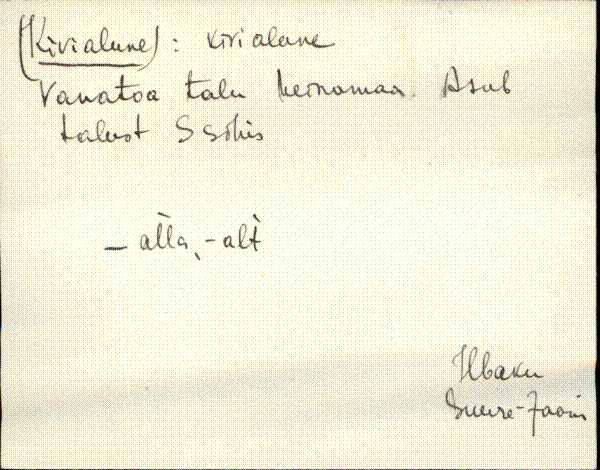 (Kivialune) : kivialune
Vanatoa talu heinamaa. Asub
talust S sihis
- alla, - alt
Ilbaku
Suure-Jaani